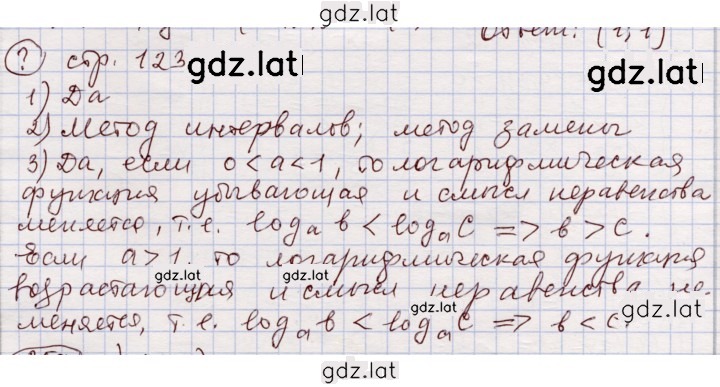 gdz.latі
Ответ: (1; 1)
gdz.latі
? стр. 123 gdz.latі
1) Да
2) Метод интервалов; метод замены
3) Да, если 0<a<1, то логарифмическая
функция убывающая и смысл неравенства
меняется, т.е. logₐ в < logₐ c => в > c.
Если a>1. то логарифмическая функция
возрастающая и смысл неравенства не
меняется, т.е. logₐ в < logₐ c => в < c.
gdz.latі
gdz.latі